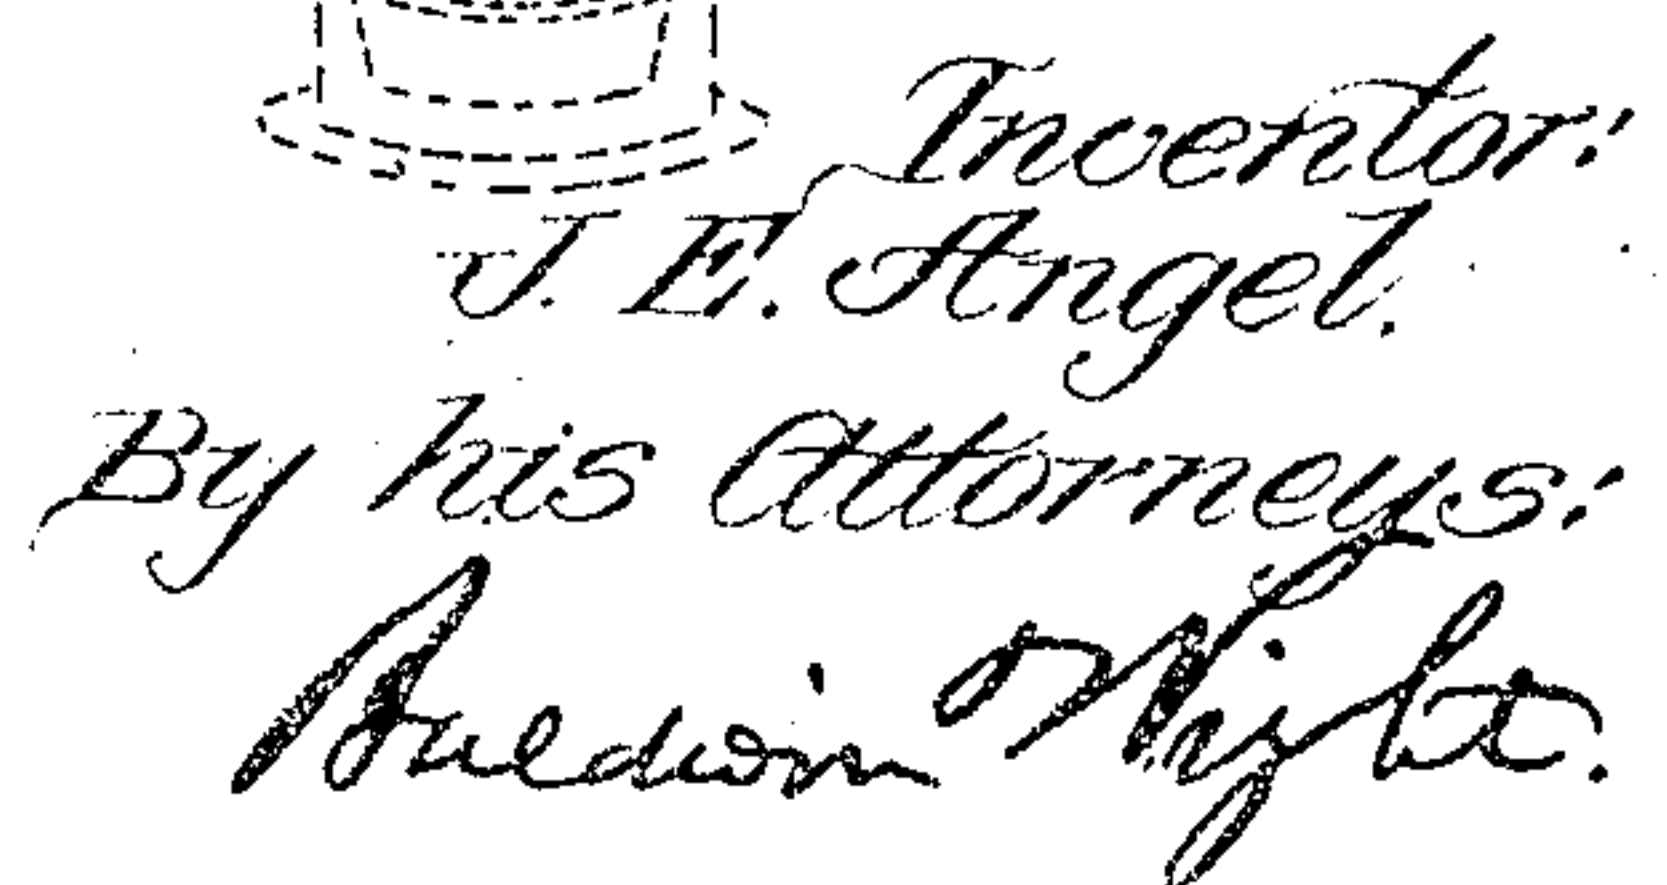 Inventor:
J. E. Angel.
By his Attorneys:
Baldwin Wight.